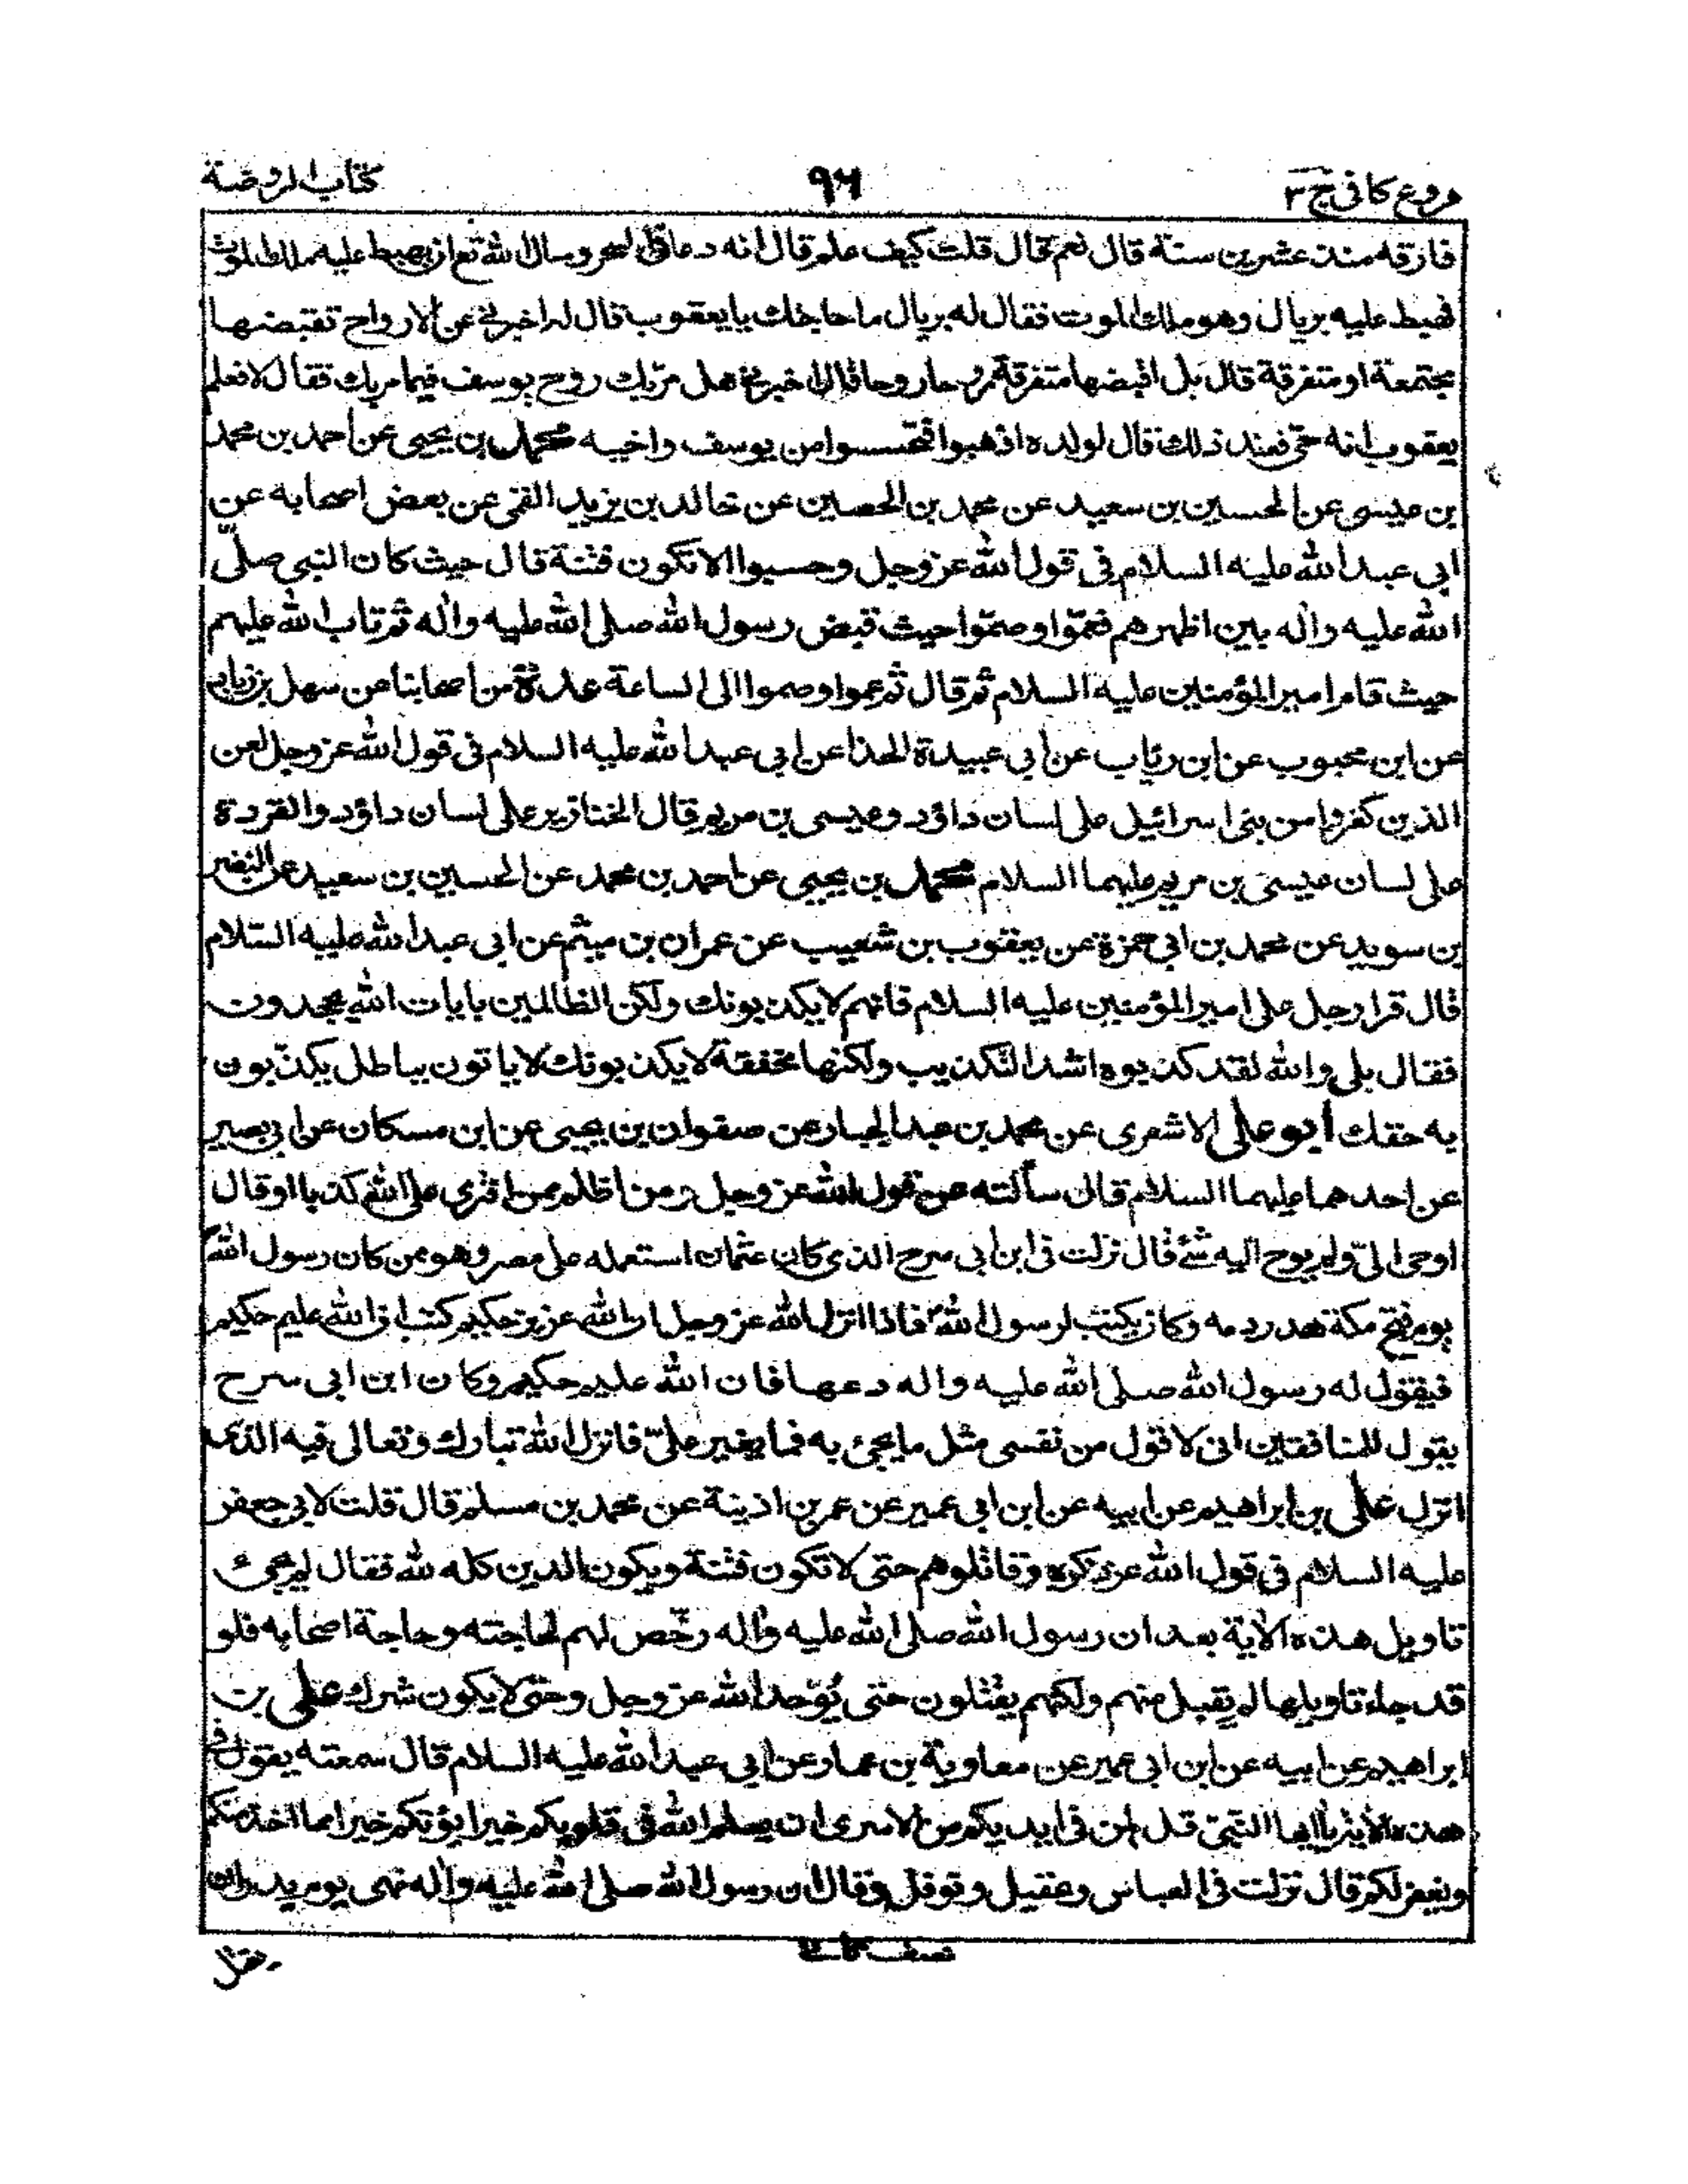 فروع كافى ج ٣
٩٦
كتاب الروضة
فارقه منذ عشرين سنة قال نعم قال قلت كيف علم قال انه دعا فى السحر وسال الله تع ان يهبط عليه ملك الموت
فهبط عليه بريال وهو ملك الموت فقال له بريال ما حاجتك يا يعقوب قال له اخبرنى عن الارواح تقبضها
مجتمعة او متفرقة قال بل اقبضها متفرقة روحا روحا قال اخبرنى هل مرّ بك روح يوسف فيما مر بك فقال لا فعلم
يعقوب انه حى فعند ذلك قال لولده اذهبوا فتحسسوا من يوسف واخيه محمد بن يحيى عن احمد بن محمد
بن عيسى عن الحسين بن سعيد عن محمد بن الحصين عن خالد بن يزيد القمى عن بعض اصحابه عن
ابى عبد الله عليه السلام فى قول الله عز وجل وحسبوا الا تكون فتنة قال حيث كان النبى صلّى
الله عليه واله بين اظهرهم فعمّوا وصمّوا حيث قبض رسول الله صلى الله عليه واله ثم تاب الله عليهم
حيث قام امير المؤمنين عليه السلام ثم قال ثم عموا وصموا الى الساعة عدة من اصحابنا عن سهل بن زياد
عن ابن محبوب عن ابن رئاب عن ابى عبيدة الحذا عن ابى عبد الله عليه السلام فى قول الله عز وجل لعن
الذين كفروا من بنى اسرائيل على لسان داؤد وعيسى بن مريم قال الخنازير على لسان داؤد والقردة
على لسان عيسى بن مريم عليهما السلام محمد بن يحيى عن احمد بن محمد عن الحسين بن سعيد عن النضر
بن سويد عن محمد بن ابى حمزة عن يعقوب بن شعيب عن عمران بن ميثم عن ابى عبد الله عليه السّلام
قال قرا رجل على امير المؤمنين عليه السلام فانهم لا يكذبونك ولكن الظالمين بايات الله يجحدون
فقال بلى والله لقد كذبوه اشد التكذيب ولكنها مخففة لا يكذبونك لا ياتون بباطل يكذّبون
به حقك أبو على الاشعرى عن محمد بن عبد الجبار عن صفوان بن يحيى عن ابن مسكان عن ابى بصير
عن احدهما عليهما السلام قال سألته عن قول الله عز وجل ومن اظلم ممن افترى على الله كذبا او قال
اوحى الىّ ولم يوح اليه شئ قال نزلت فى ابن ابى سرح الذى كان عثمان استعمله على مصر وهو ممن كان رسول الله
يوم فتح مكة هدر دمه وكان يكتب لرسول الله فاذا انزل الله عز وجل ان الله عزيز حكيم كتب ان الله عليم حكيم
فيقول له رسول الله صلى الله عليه واله دعها فان الله عليم حكيم وكان ابن ابى سرح
يقول للمنافقين انى لاقول من نفسى مثل ما يجئ به فما يغير علىّ فانزل الله تبارك وتعالى فيه الذى
انزل على بن ابراهيم عن ابيه عن ابن ابى عمير عن عمر بن اذينة عن محمد بن مسلم قال قلت لابى جعفر
عليه السلام فى قول الله عز ذكره وقاتلوهم حتى لا تكون فتنة ويكون الدين كله لله فقال لم يجئ
تاويل هذه الاية بعد ان رسول الله صلى الله عليه واله رخّص لهم لحاجته وحاجة اصحابه فلو
قد جاء تاويلها لم يقبل منهم ولكنهم يقتلون حتى يُوَحد الله عز وجل وحتى لا يكون شرك على بن
ابراهيم عن ابيه عن ابن ابى عمير عن معاوية بن عمار عن ابى عبد الله عليه السلام قال سمعته يقول فى
هذه الاية يا ايها النبىّ قل لمن فى ايديكم من الاسرى ان يعلم الله فى قلوبكم خيرا يؤتكم خيرا مما اخذ منكم
ويغفر لكم قال نزلت فى العباس وعقيل ونوفل وقال ان رسول الله صلى الله عليه واله نهى يوم بدر ان